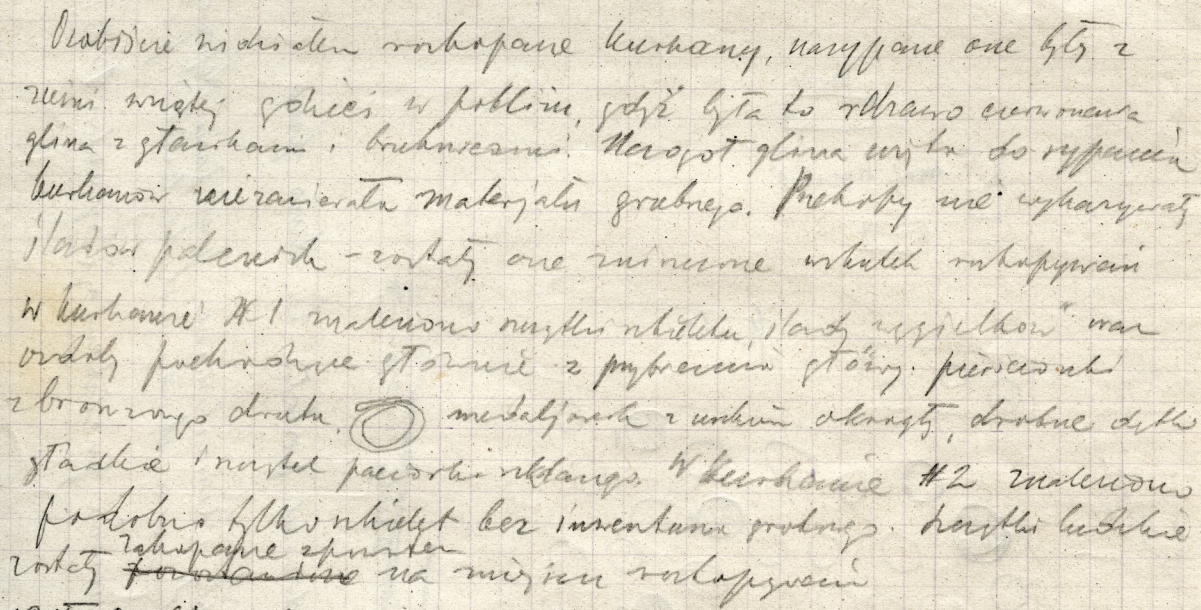 Osobiście widziałem rozkopane kurhany, nasypane one były z
ziemi wziętej gdzieś w pobliżu, gdyż była to zdrawo czerwonawa
glina z głazikami i . Naogół glina użyta do sypania
kurhanów nie zawierała materjału grobnego. Przekopy nie wykazywały
śladów palenisk - zostały one zniszczone wskutek rozkopywań
W kurhanie #1 znaleziono resztki szkieletu, ślady "węgielków" oraz
ozdoby pochodzące głównie z przybrania głowy. pierścionki
z bronzowego drutu, medaljonek z uszkiem okrągły, drobne
gładkie i resztek paciorka szklanego. W kurhanie #2 znaleziono
podobno tylko szkielet bez inwentarza grobnego. Resztki ludzkie
zakopane zpowrotem
zostały na miejscu rozkopywań